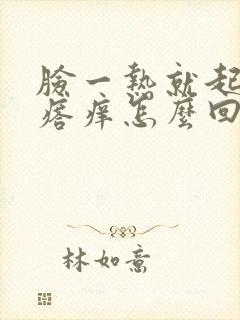 臉一熱就起
痞癢怎麼回
林如意